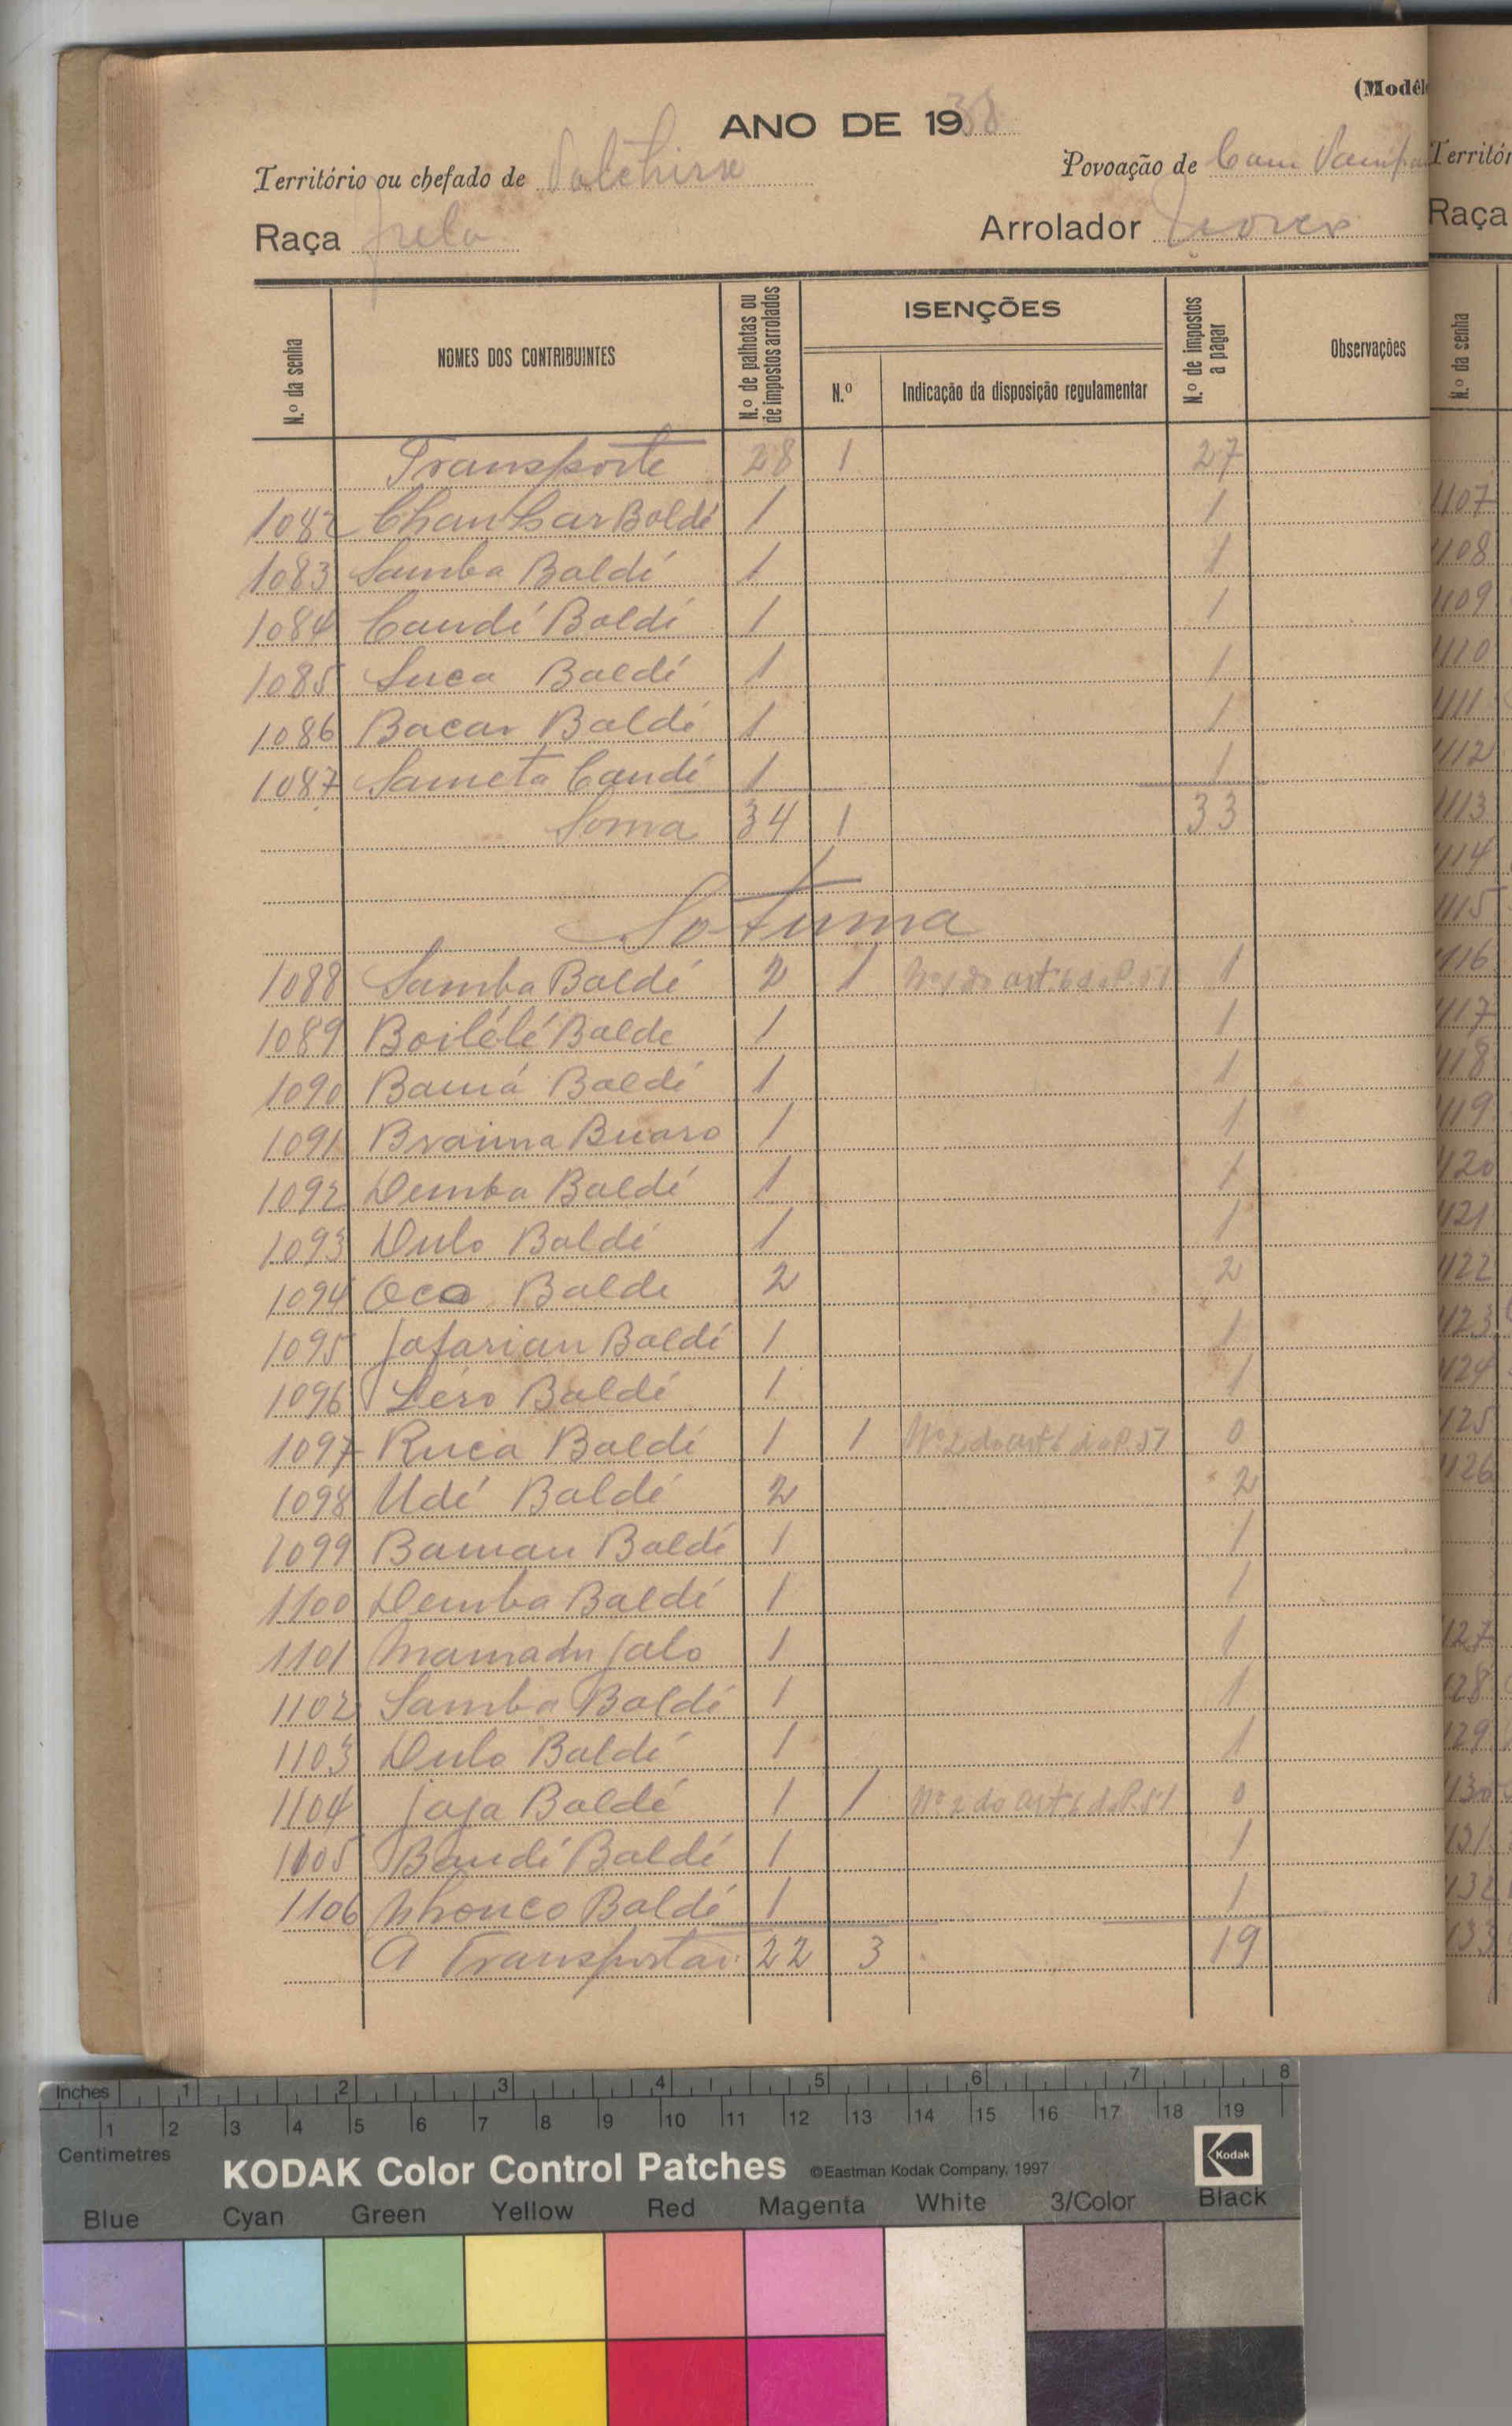 (Modêl
ANO DE 1938
Território ou chefado de
Povoação de Cam
Raça
Arrolador
N.º da senha
NOMES DOS CONTRIBUINTES
N.º de palhotas ou de impostos arrolados
ISENÇÕES
N.º
Indicação da disposição regulamentar
N.º de impostos a pagar
Observações
Transporte 28 1 27
1082 Baldé 1 1
1083 Samba Baldé 1 1
1084 Candé Baldé 1 1
1085 Suca Baldé 1 1
1086 Bacar Baldé 1 1
1087 Sameta Candé 1 1
Soma 34 1 33
Sotuma
1088 Samba Baldé 2 1 Nº 1 do artº 6 do P. 57 1
1089 Boilélé Balde 1 1
1090 Bamá Baldé 1 1
1091 Braima Buaro 1 1
1092 Demba Baldé 1 1
1093 Dulo Baldé 1 1
1094 Oco Balde 2 2
1095 Jafarian Baldé 1 1
1096 Léro Baldé 1 1
1097 Ruca Baldé 1 1 Nº 2 do artº 6 do P. 57 0
1098 Udé Baldé 2 2
1099 Baman Baldé 1 1
1100 Demba Baldé 1 1
1101 Mamadu Jalo 1 1
1102 Samba Baldé 1 1
1103 Dulo Baldé 1 1
1104 Jaja Baldé 1 1 Nº 2 do artº 6 do P. 57 0
1105 Bandé Baldé 1 1
1106 Nhonco Baldé 1 1
A Transportar 22 3 19
Territór
Raça
N.º da senha
1107
1108
1109
1110
1111
1112
1113
1114
1115
1116
1117
1118
1119
1120
1121
1122
1123
1124
1125
1126
1127
1128
1129
1130
1131
1132
1133
Inches 1 2 3 4 5 6 7 8
1 2 3 4 5 6 7 8 9 10 11 12 13 14 15 16 17 18 19
Centimetres
KODAK Color Control Patches ©Eastman Kodak Company, 1997 Kodak
Blue Cyan Green Yellow Red Magenta White 3/Color Black